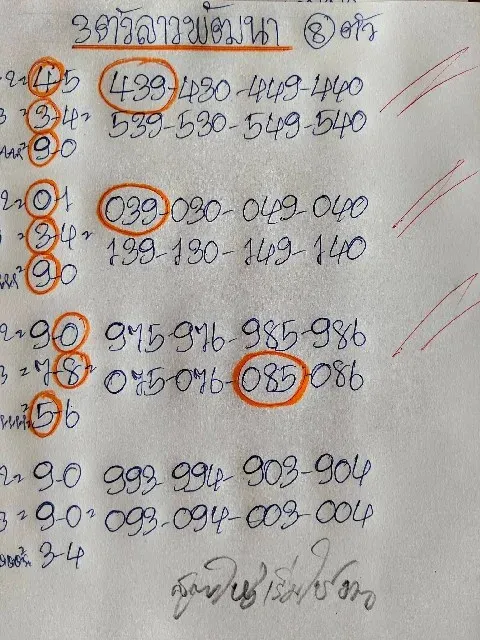 3ตัวลาวพัฒนา ⑧ ตัว
2= 4-5 439-430-449-440
3 3-4= 539-530-549-540
9-0
2= 0-1 039-030-049-040
3-4= 139-130-149-140
9-0
2= 9-0 975-976-985-986
3= 7-8= 075-076-085-086
5-6
2= 9-0 993-994-903-904
3= 9-0= 093-094-003-004
3-4